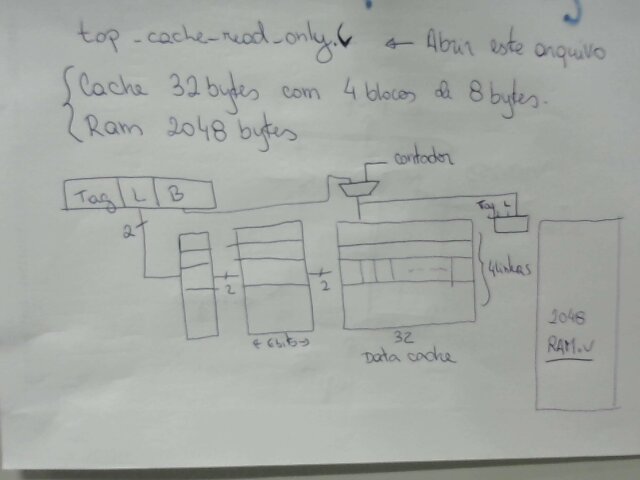 top_cache_read_only.v ← Abrir este arquivo
Cache 32 bytes com 4 blocos de 8 bytes.
Ram 2048 bytes
contador
Tag L B
Tag L
2
2
2
4 linhas
6 bits
32
Data cache
2048
RAM.v